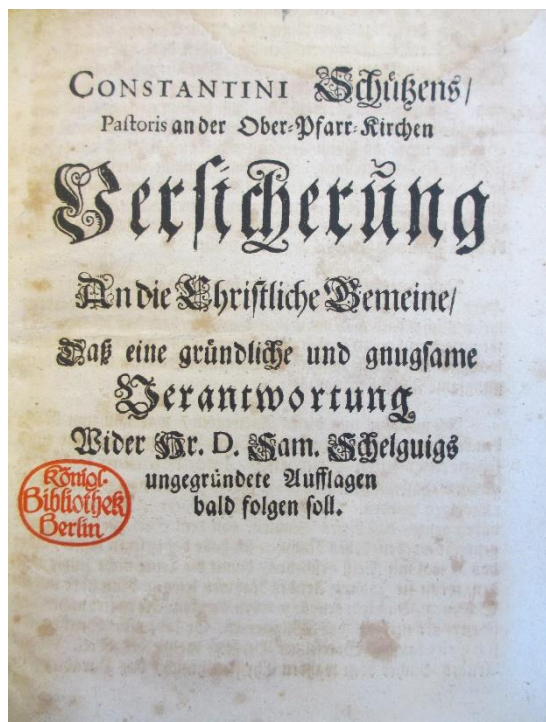 CONSTANTINI Schützens/
Pastoris an der Ober-Pfarr-Kirchen
Versicherung
An die Christliche Gemeine/
Daß eine gründliche und gnugsame
Verantwortung
Wider Hr. D. Sam. Schelguigs
ungegründete Aufflagen
bald folgen soll.
Königl.
Bibliothek
Berlin